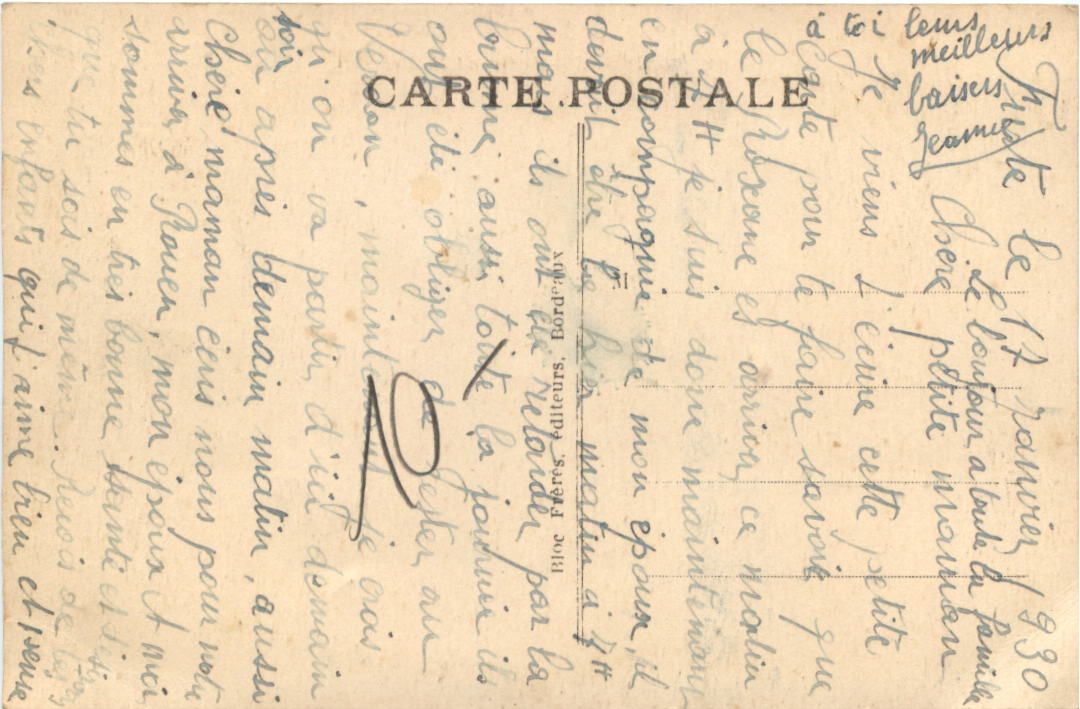 CARTE POSTALE
Bloc Frères, éditeurs, Bordeaux
le 17 Janvier 1930
Le bonjour a toute la famille
Chère petite maman
Je viens t'écrire cette petite
Carte pour te faire savoir que
le es arriver ce matin
à H je suis donc maintenant
en compagnie de mon époux, il
devait être hier matin à 4 H
mais ils ont été retarder par la
brume aussi toute la journée ils
ont été obliger de rester au
maintenant je crois
qu'on va partir d'ici demain
soir
ou après demain matin, aussi
Chère maman écris nous pour notre
arriver à Rouen, mon époux et moi
sommes en très bonne santé et
que tu sois de même. Reçois de tes
chers enfants qui t'aime bien et pense
à toi leurs
meilleurs
baisers
Jeanne